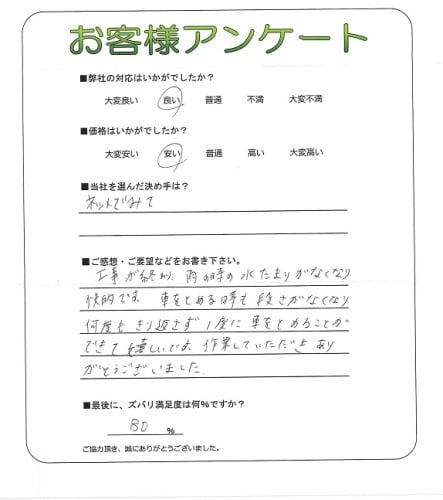 お客様アンケート
■弊社の対応はいかがでしたか?
大変良い 良い 普通 不満 大変不満
■価格はいかがでしたか?
大変安い 安い 普通 高い 大変高い
■当社を選んだ決め手は?
ネットでみて
■ご感想・ご要望などをお書き下さい。
工事が終わり、雨の時の水たまりがなくなり
快的です。車をとめる時も段さがなくなり
何度もきり返さず1度に車をとめることが
できて嬉しいです。作業していただきあり
がとうございました。
■最後に、ズバリ満足度は何%ですか?
80 %
ご協力頂き、誠にありがとうございました。